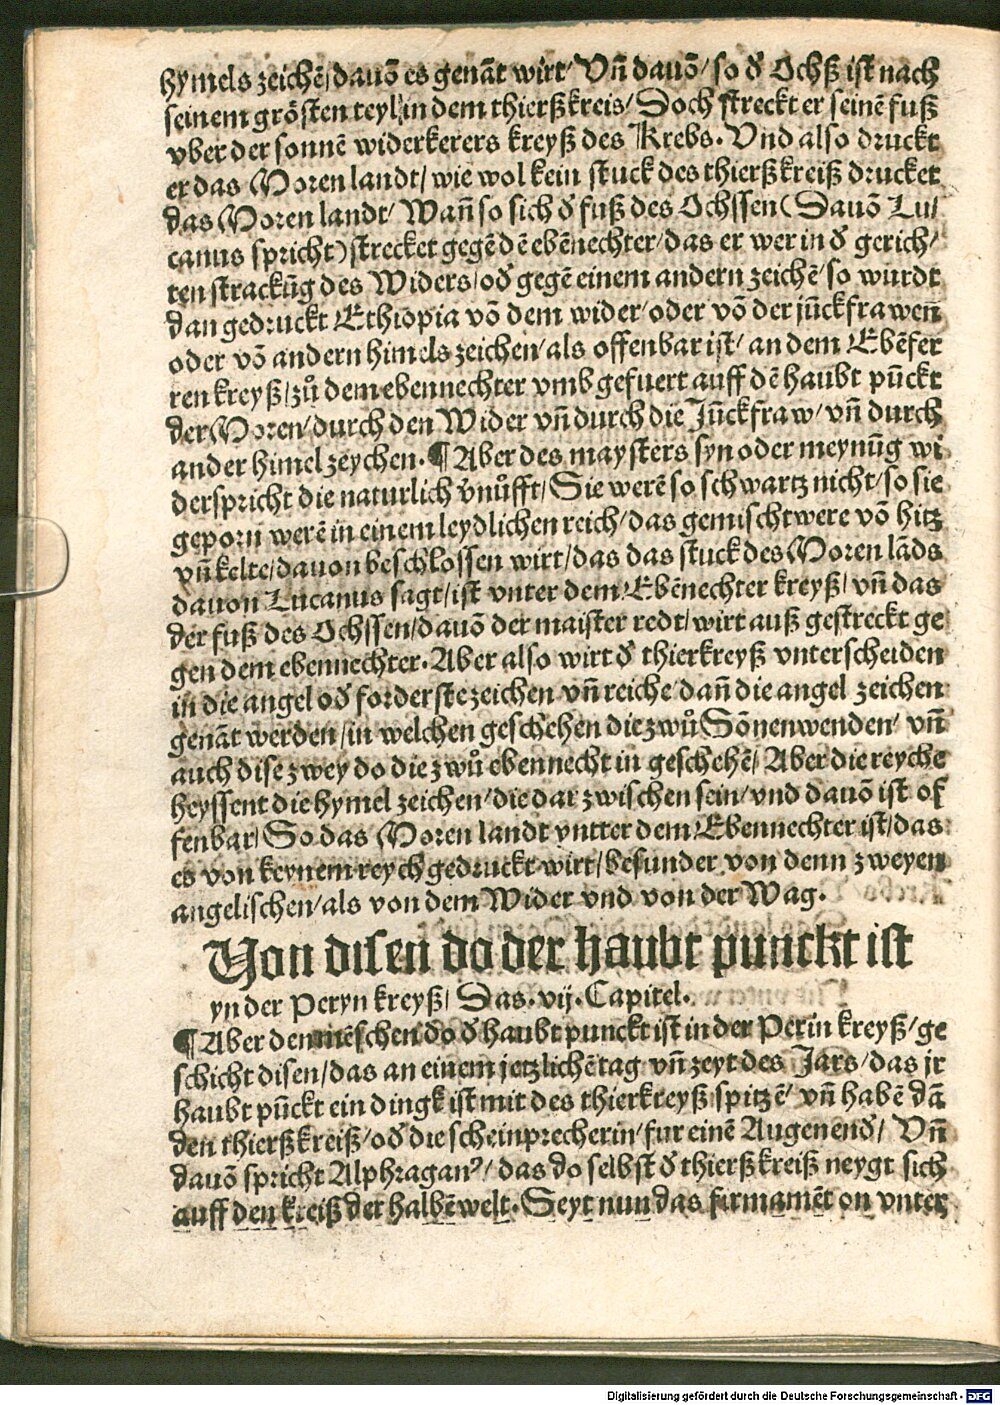 hymels zeichẽ/dauõ es genãt wirt/ Vñ dauõ/ so d̕ Ochß ist nach
seinem grösten teyl/in dem thierßkreis/ Doch streckt er seinẽ fuß
vber der sonnẽ widerkerers kreyß des Krebs. Vnd also druckt
er das Moren landt/ wie wol kein stuck des thierßkreiß drucket
das Moren landt/ Wañ so sich d̕ fuß des Ochssen (Dauõ Lu/
canus spricht) strecket gegẽ dẽ ebẽnechter/das er wer in d̕ gerich/
ten strackũg des Widers/od̕ gegẽ einem andern zeichẽ/ so wurdt
dan gedruckt Ethiopia võ dem wider/ oder võ der jũckfrawen
oder võ andern himels zeichen/als offenbar ist/ an dem Ebẽfer
ren kreyß/zů dem ebennechter vmb gefuert auff dẽ haubt pũckt
der Moren/durch den Wider vñ durch die Jũckfraw/ vñ durch
ander himel zeychen. ¶ Aber des maysters syn oder meynũg wi
derspricht die naturlich v̕nůfft/ Sie werẽ so schwartz nicht/ so sie
geporn werẽ in einem leydlichen reich/ das gemischt were võ hitz
vñ kelte/dauon beschlossen wirt/das das stuck des Moren lãds
dauon Lucanus sagt/ist vnter dem Ebẽnechter kreyß/ vñ das
der fuß des Ochssen/dauõ der maister redt/ wirt auß gestreckt ge
gen dem ebennechter. Aber also wirt d̕ thierkreyß vnterscheiden
in die angel od̕ forderste zeichen vñ reiche/ dañ die angel zeichen
genãt werden/in welchen geschehen die zwů Sõnenwenden/ vñ
auch dise zwey do die zwů ebennecht in geschehẽ/ Aber die reyche
heyssent die hymel zeichen/die dar zwischen sein/ vnd dauõ ist of
fenbar/ So das Moren landt vntter dem Ebennechter ist/das
es von keynem reych gedruckt wirt/ besunder von denn zweyen
angelischen/als von dem Wider vnd von der Wag.
Von disen do der haubt punckt ist
yn der Peryn kreyß/ Das .vij. Capitel.
¶ Aber den mẽschen do d̕ haubt punckt ist in der Perin kreyß/ ge
schicht disen/das an einem jetzlichẽ tag vñ zeyt des Jars/ das jr
haubt pũckt ein dingk ist mit des thierkreyß spitzẽ/ vñ habẽ dã
den thierßkreiß/od̕ die scheinprecherin/ fur einẽ Augenend̕/ Vñ
dauõ spricht Alphragan⁹/ das do selbst d̕ thierßkreiß neygt sich
auff den kreiß der halbẽ welt. Seyt nun das firmamẽt on vnter
Digitalisierung gefördert durch die Deutsche Forschungsgemeinschaft - DFG